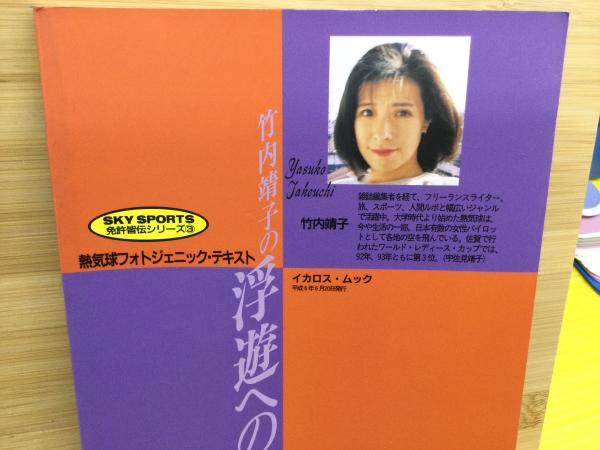 竹内靖子の浮遊への
SKY SPORTS
免許皆伝シリーズ③
熱気球フォトジェニック・テキスト
Yasuko
Takeuchi
竹内靖子
雑誌編集者を経て、フリーランスライター。
旅、スポーツ、人間ルポと幅広いジャンル
で活躍中。大学時代より始めた熱気球は、
今や生活の一部。日本有数の女性パイロッ
トとして各地の空を飛んでいる。佐賀で行
われたワールド・レディース・カップでは、
92年、93年ともに第3位。（宇佐見靖子）
イカロス・ムック
平成6年6月20日発行